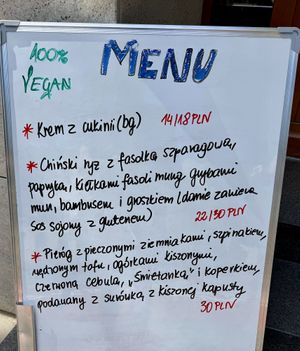 100%
VEGAN
MENU
* Krem z cukinii (bg) 14/18 PLN
* Chiński ryż z fasolką szparagową,
papryką, kiełkami fasoli mung, grzybami
mun, bambusem i groszkiem (danie zawiera
sos sojowy z glutenem) 22/30 PLN
* Pieróg z pieczonymi ziemniakami, szpinakiem,
wędzonym tofu, ogórkami kiszonymi,
czerwoną cebulą, "śmietanką" i koperkiem,
podawany z surówką z kiszonej kapusty
30 PLN